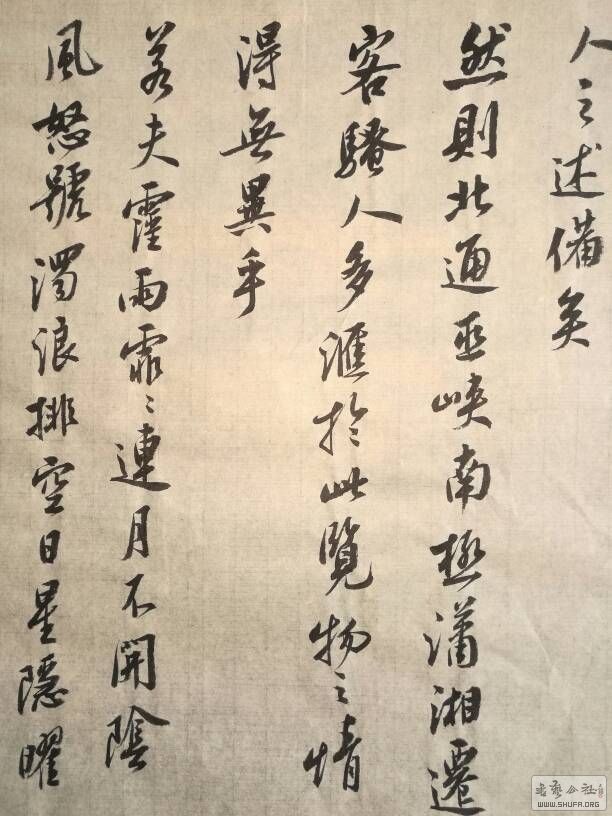 人之述備矣
然則北通巫峽南極瀟湘遷
客騷人多滙於此覽物之情
淂無異乎
若夫霪雨霏〻連月不開陰
風怒號濁浪排空日星隱曜
書藝公社
WWW.SHUFA.ORG